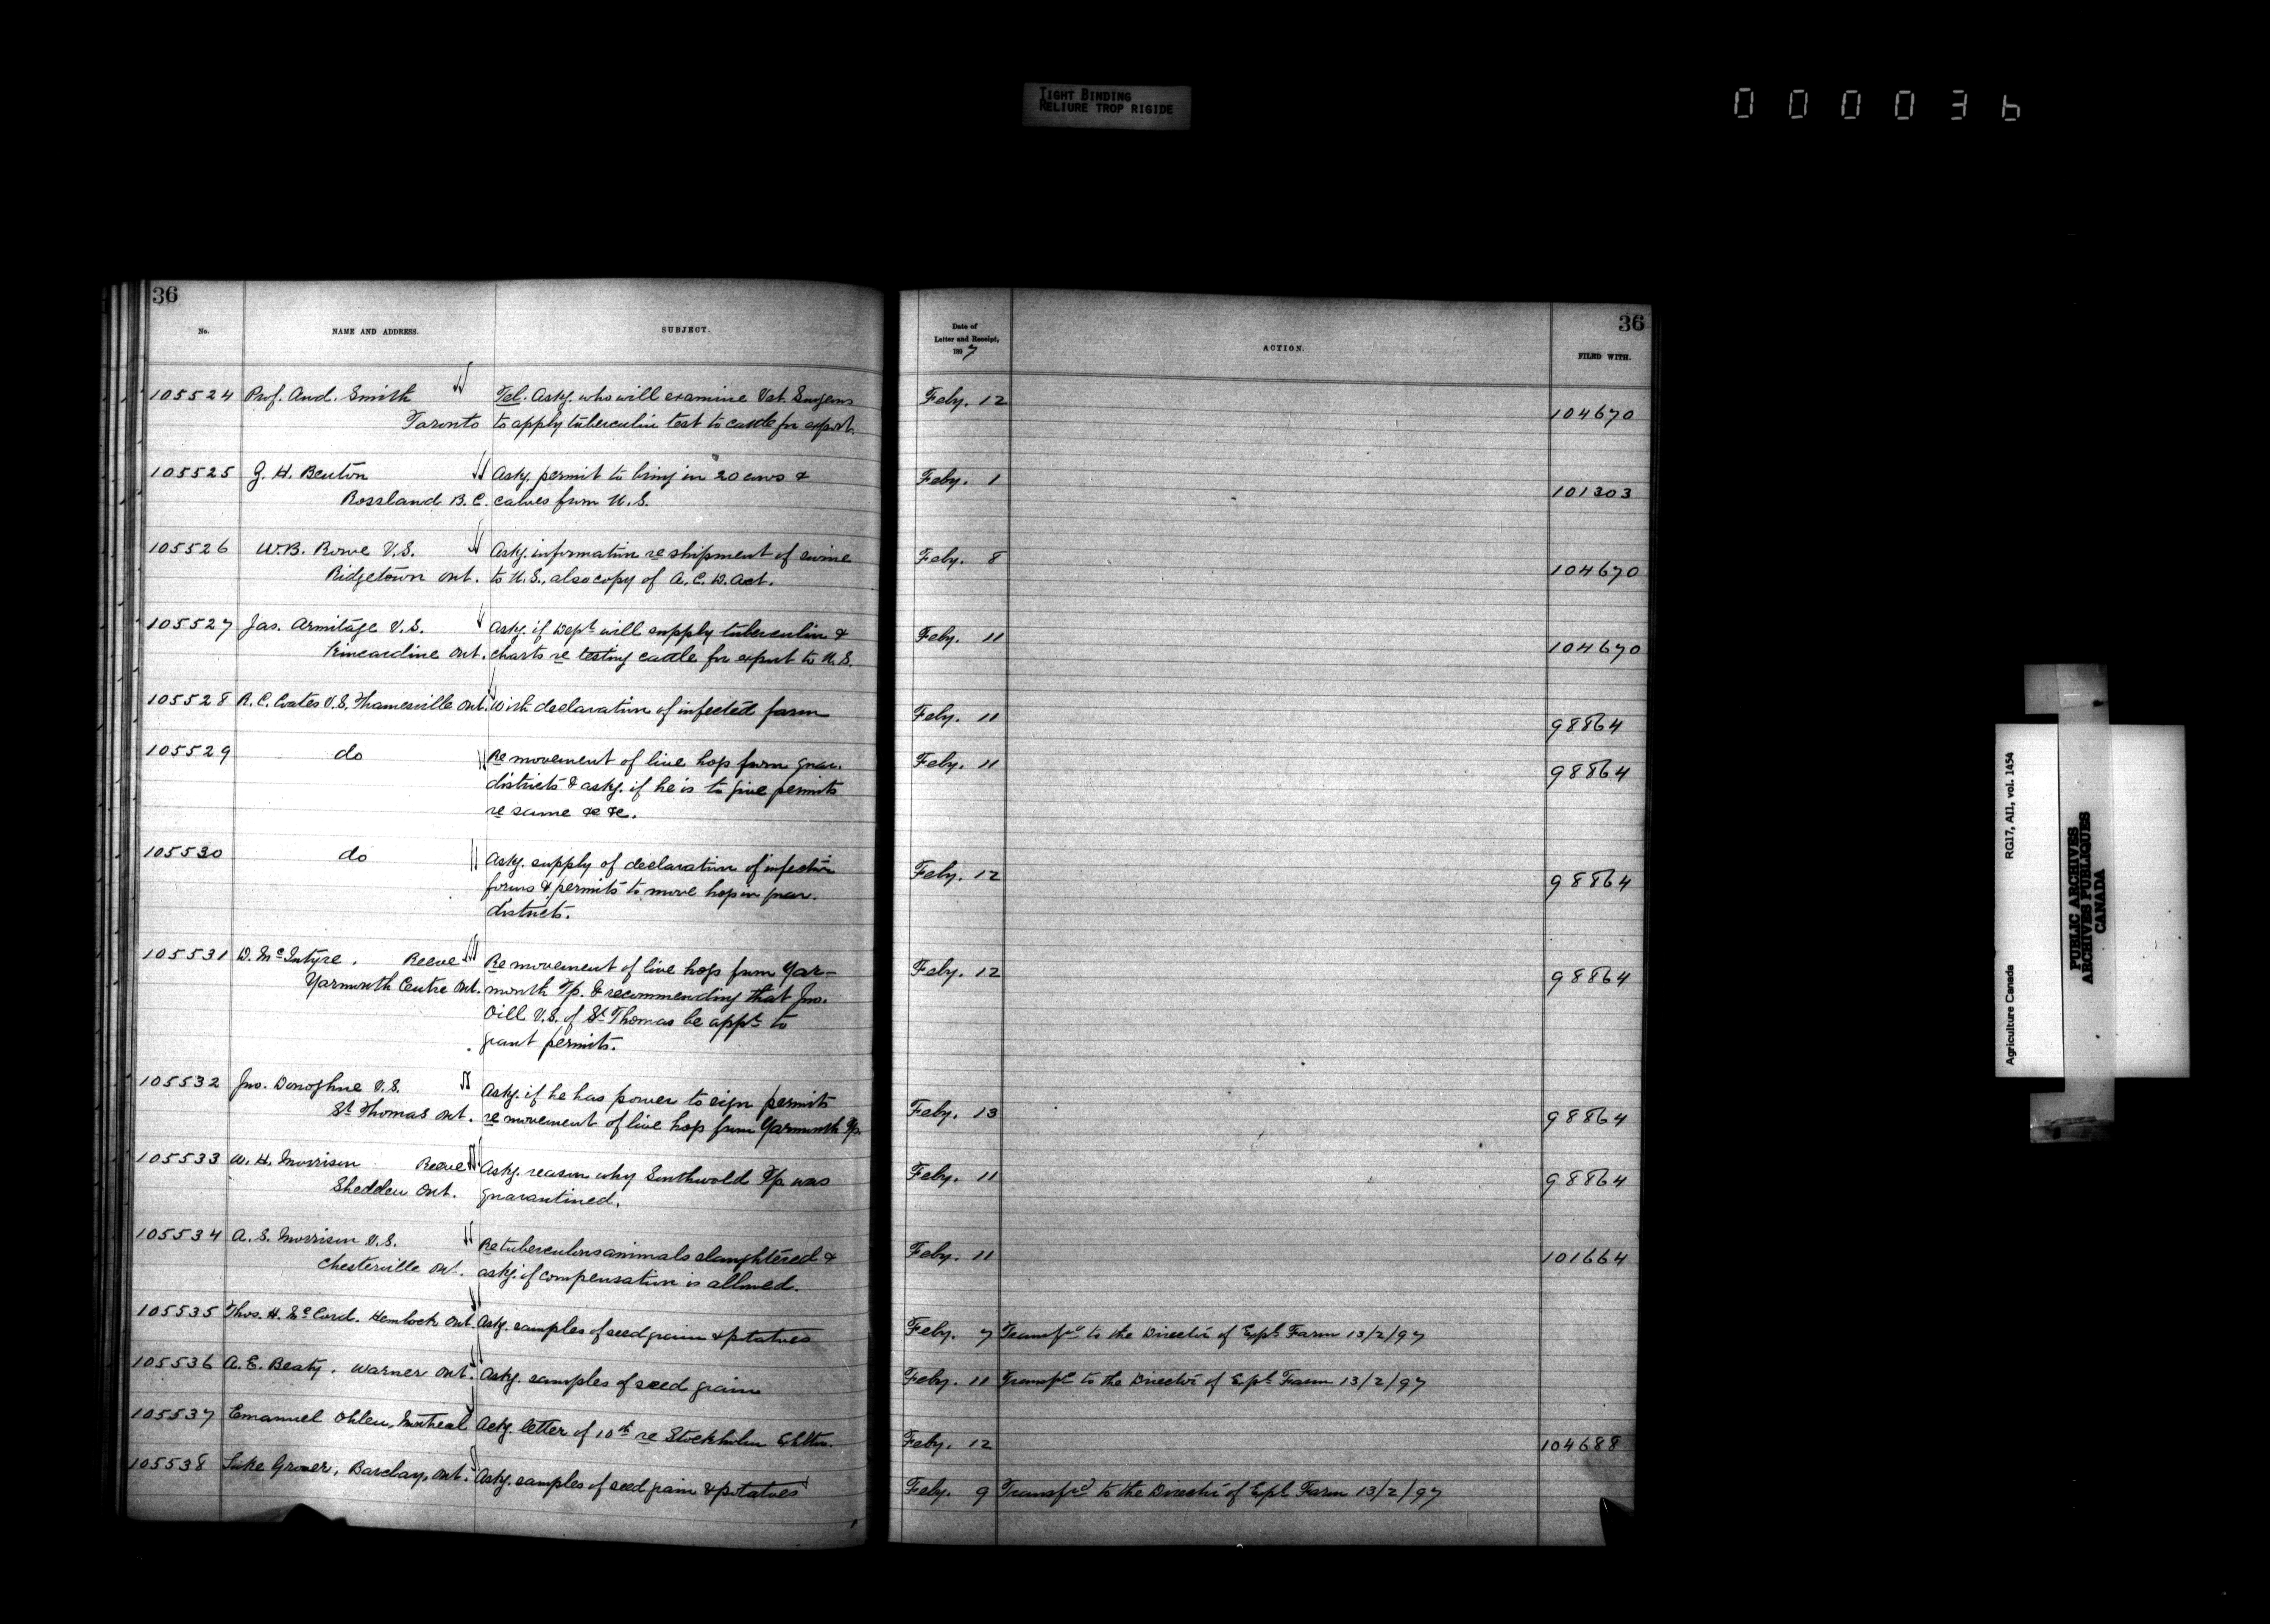 TIGHT BINDING
RELIURE TROP RIGIDE
000036
36
No.
NAME AND ADDRESS.
SUBJECT.
105524 Prof. And. Smith Tel. Askg. who will examine Vet. Surgeons
Toronto to apply tuberculin test to cattle for export.
105525 G. H. Benton Askg. permit to bring in 20 cows &
Rossland B.C. calves from U.S.
105526 W.B. Rowe V.S. Askg. information re shipment of swine
Ridgetown Ont. to U.S., also copy of A.C.D. Act.
105527 Jas. Armitage V.S. Askg. if Dept will supply tuberculin &
Kincardine Ont. charts re testing cattle for export to U.S.
105528 R.C. Coates V.S. Thamesville Ont. With declaration of infected farm
105529 do Re movement of live hogs from quar.
districts & askg. if he is to give permits
re same &c &c.
105530 do Askg. supply of declaration of infection
forms & permits to move hogs in quar.
districts.
105531 D. McIntyre. Reeve Re movement of live hogs from Yar-
Yarmouth Centre Ont. mouth Tp. & recommending that Jno.
Oill V.S. of St Thomas be appt to
grant permits.
105532 Jno. Donoghue V.S. Askg. if he has power to sign permits
St Thomas Ont. re movement of live hogs from Yarmouth Tp.
105533 W. H. Morrison Reeve Askg. reason why Southwold Tp. was
Shedden Ont. quarantined.
105534 A. S. Morrison V.S. Re tuberculous animals slaughtered &
Chesterville Ont. askg. if compensation is allowed.
105535 Thos. H. McCord. Hemlock Ont. Askg. samples of seed grain & potatoes
105536 A.E. Beaty, Warner Ont. Askg. samples of seed grain
105537 Emanuel Ohlen, Montreal Ackg. letter of 10th re Stockholm Exhtn.
105538 Luke Grover, Barclay, Ont. Askg. samples of seed grain & potatoes
36
Date of
Letter and Receipt,
1897
ACTION.
FILED WITH.
Feby. 12 104670
Feby. 1 101303
Feby. 8 104670
Feby. 11 104670
Feby. 11 98864
Feby. 11 98864
Feby. 12 98864
Feby. 12 98864
Feby. 13 98864
Feby. 11 98864
Feby. 11 101664
Feby. 7 Transfd to the Director of Expl Farm 13/2/97
Feby. 11 Transfd to the Director of Expl Farm 13/2/97
Feby. 12 104688
Feby. 9 Transfd to the Director of Expl Farm 13/2/97
Agriculture Canada RG17, AII, vol. 1454
PUBLIC ARCHIVES
ARCHIVES PUBLIQUES
CANADA